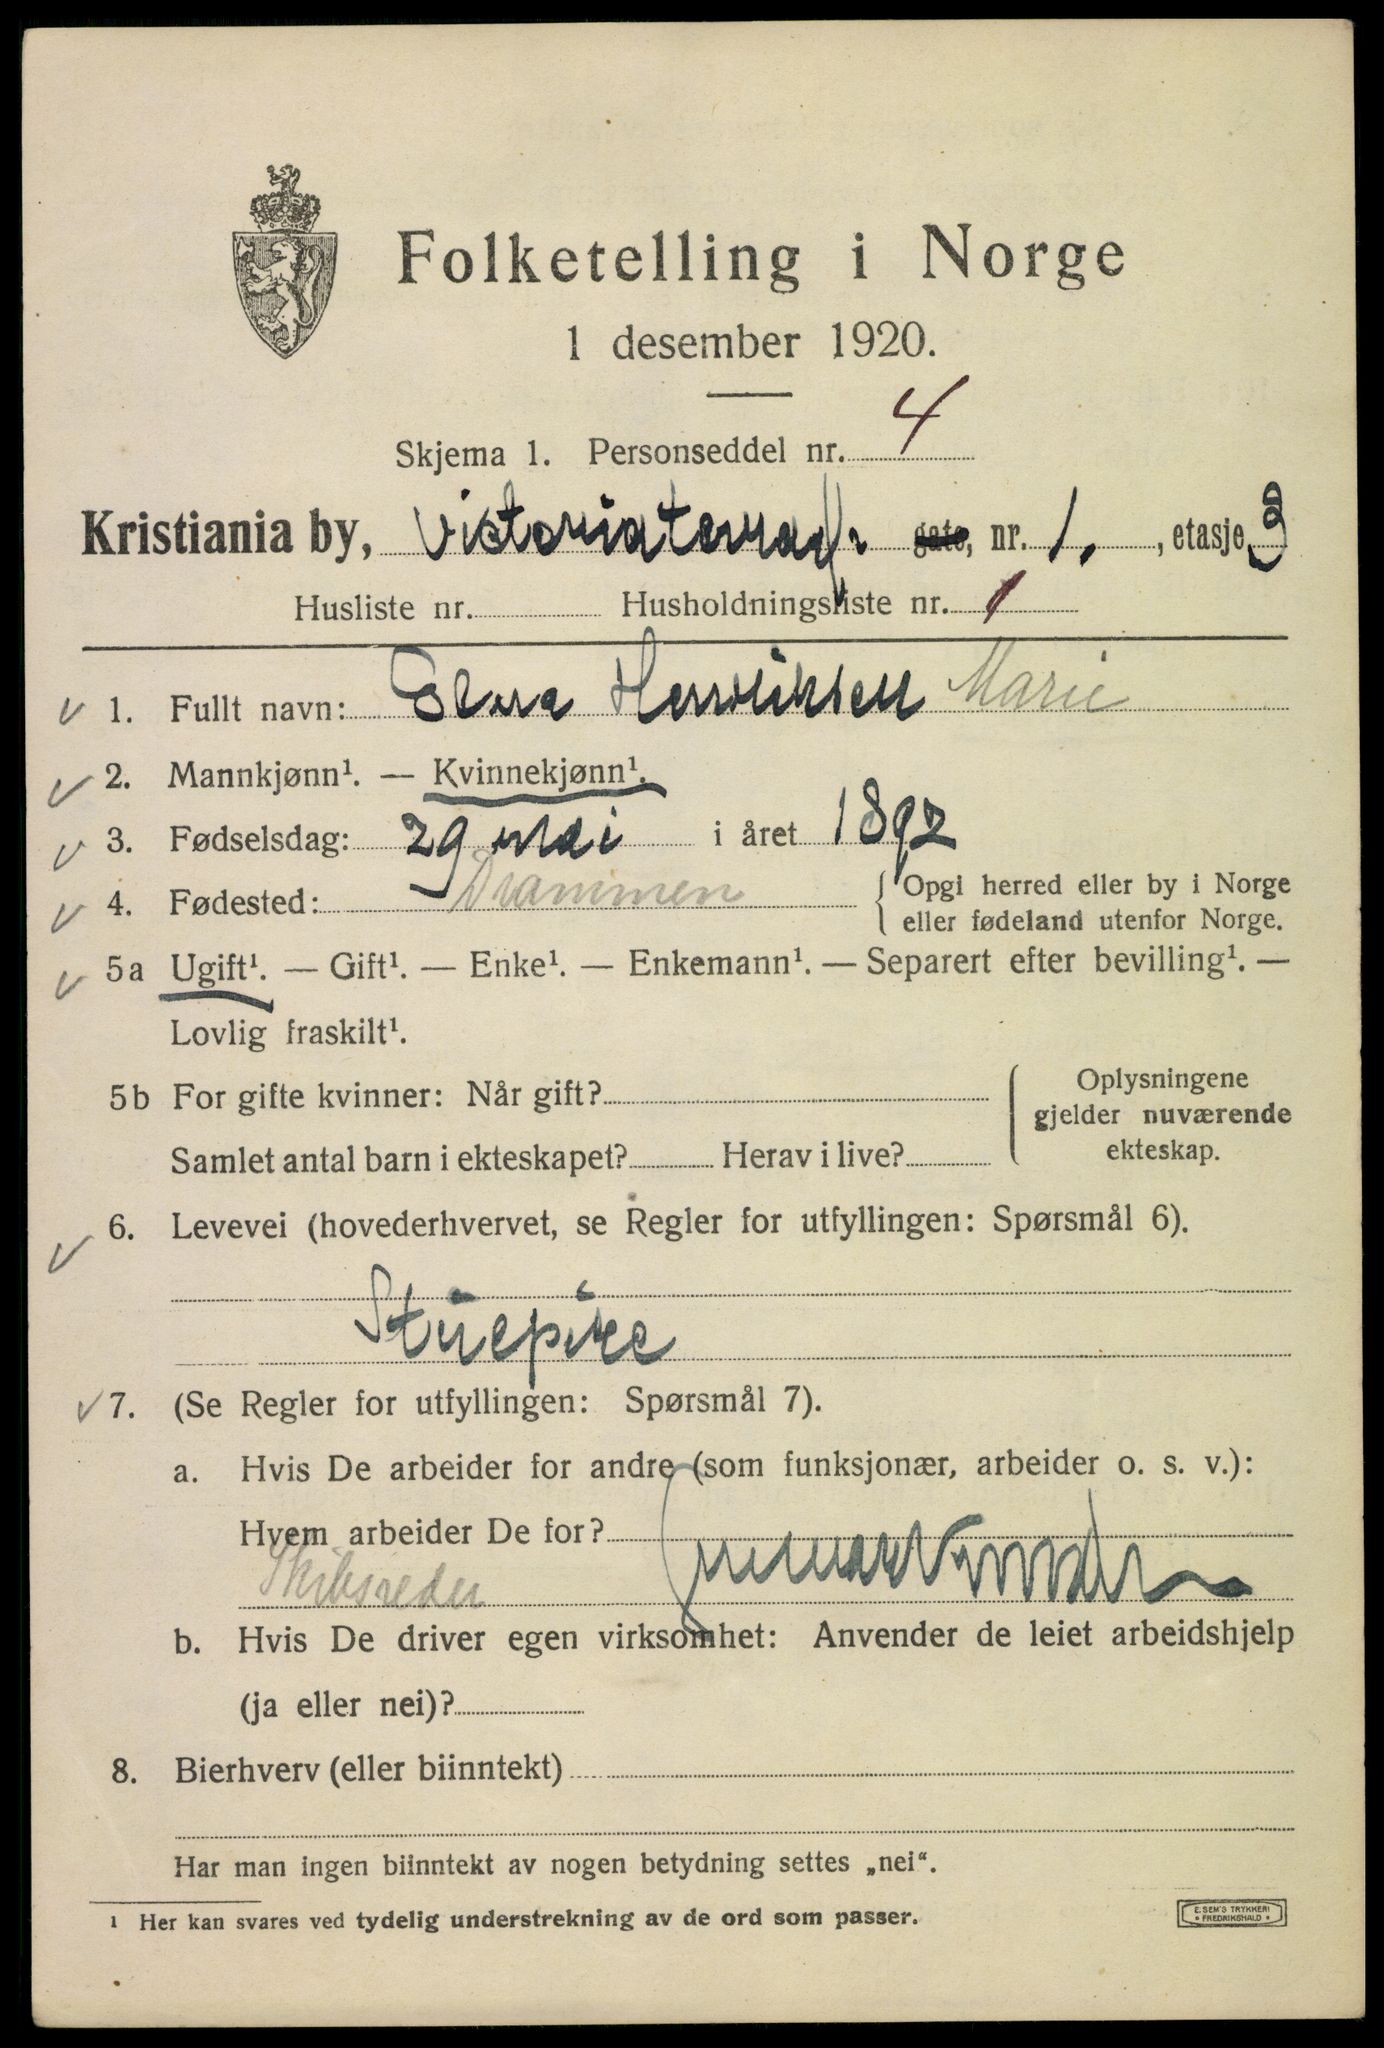 Folketelling i Norge
1 desember 1920.
Skjema 1. Personseddel nr. 4
Kristiania by, Victoriaterrasse gate, nr. 1. , etasje 3
Husliste nr. Husholdningsliste nr. 1
1. Fullt navn: Henriksen Marie
2. Mannkjønn¹. — Kvinnekjønn¹.
3. Fødselsdag: 29 mai i året 1892
4. Fødested: Drammen { Opgi herred eller by i Norge
eller fødeland utenfor Norge.
5a Ugift¹. — Gift¹. — Enke¹. — Enkemann¹. — Separert efter bevilling¹. —
Lovlig fraskilt¹.
5b For gifte kvinner: Når gift? { Oplysningene
gjelder nuværende
Samlet antal barn i ekteskapet? Herav i live? ekteskap.
6. Levevei (hovederhvervet, se Regler for utfyllingen: Spørsmål 6).
Stuepike
7. (Se Regler for utfyllingen: Spørsmål 7).
a. Hvis De arbeider for andre (som funksjonær, arbeider o. s. v.):
Hvem arbeider De for?
Skibsreder
b. Hvis De driver egen virksomhet: Anvender de leiet arbeidshjelp
(ja eller nei)?
8. Bierhverv (eller biinntekt)
Har man ingen biinntekt av nogen betydning settes „nei“.
¹ Her kan svares ved tydelig understrekning av de ord som passer.
E. SEM'S TRYKKERI
FREDRIKSHALD